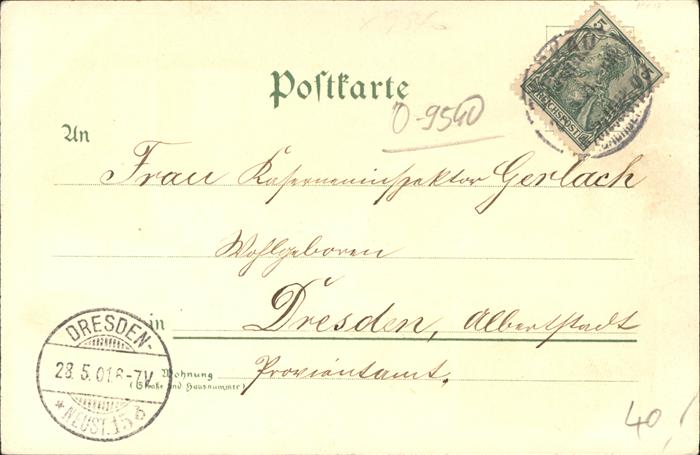 Postkarte
0-9540
5
REICHSPOST
An
Frau Kaserneninspektor Gerlach
Wohlgeboren
in Dresden, Albertstadt
Wohnung
(Straße und Hausnummer)
Proviantamt.
DRESDEN-
28.5.01.6-7V.
* NEUST. 15 d
40,